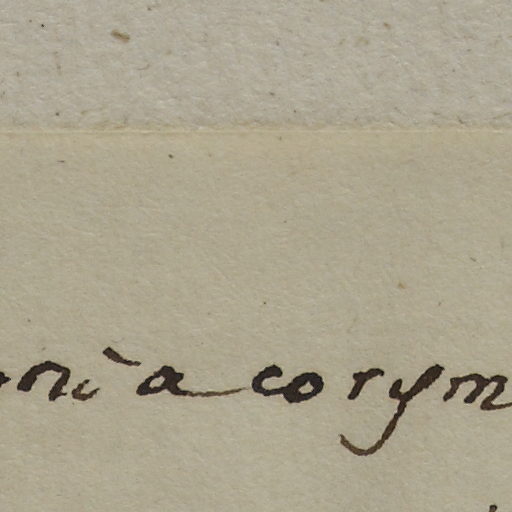 onia corym